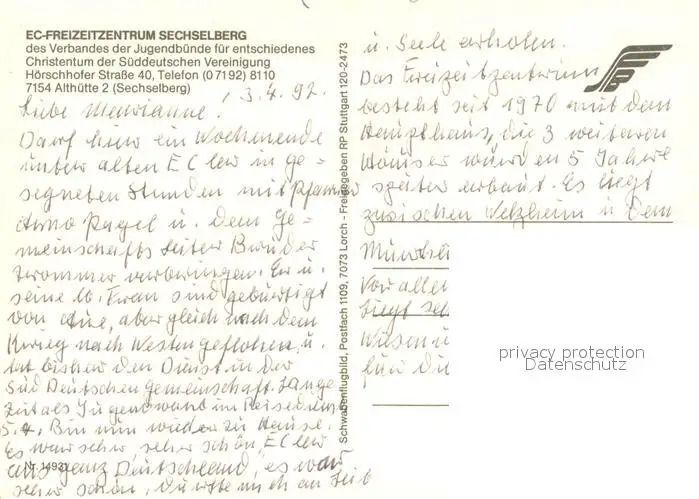 EC-FREIZEITZENTRUM SECHSELBERG
des Verbandes der Jugendbünde für entschiedenes
Christentum der Süddeutschen Vereinigung
Hörschhofer Straße 40, Telefon (0 71 92) 81 10
7154 Althütte 2 (Sechselberg)
, 3.4.92.
Liebe Marianne!
Darf hier ein Wochenende
unter alten EC ler in ge =
segneten Stunden mit Pfarrer
Arno Pagel u. dem Ge =
meinschafts Leiter Bruder
verbringen. Er u.
seine lb. Frau sind gebürtigt
von aber gleich nach dem
Krieg nach Westen geflohen, u.
hat bisher den Dienst in der
Süd Deutschen Gemeinschaft. Lange
Zeit als Jugendwart im Reisedienst
5.4. Bin nun wieder zu Hause.
Es war sehr, sehr schön, EC ler
aus ganz Deutschland, es war
sehr schön, durfte mich an Leib
Nr. 1493
Schwabenflugbild, Postfach 1109, 7073 Lorch - Freigegeben RP Stuttgart 120-2473
u. Seele erholen.
Das Freizeitzentrum
besteht seit 1970 mit dem
Haupthaus, die 3 weiteren
Häuser wurden 5 Jahre
später erbaut. Es liegt
zwischen Welzheim u dem
Vor allem
liegt
Wiesen u
für
privacy protection
Datenschutz